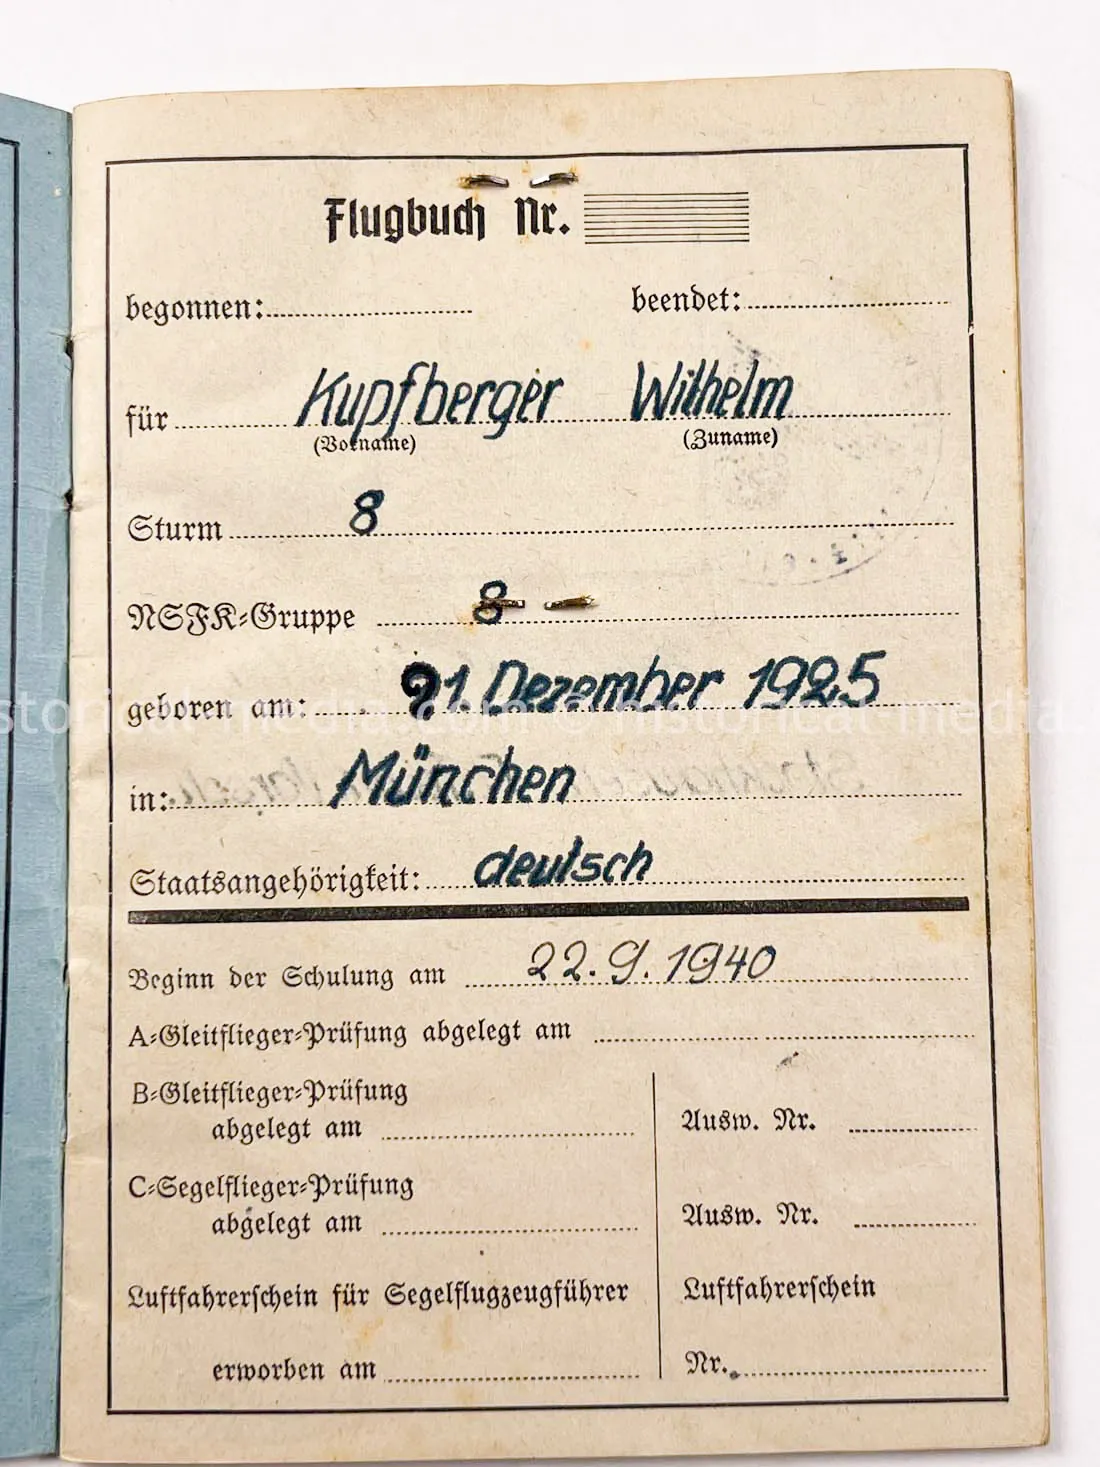 Flugbuch Nr.
begonnen: beendet:
für Kupfberger Wilhelm
(Vorname) (Zuname)
Sturm 8
NSFK-Gruppe 8
geboren am: 21 Dezember 1925
in: München
Staatsangehörigkeit: deutsch
Beginn der Schulung am 22.9.1940
A-Gleitflieger-Prüfung abgelegt am
B-Gleitflieger-Prüfung
abgelegt am Ausw. Nr.
C-Segelflieger-Prüfung
abgelegt am Ausw. Nr.
Luftfahrerschein für Segelflugzeugführer Luftfahrerschein
erworben am Nr.
historical-media.com © historical-media.